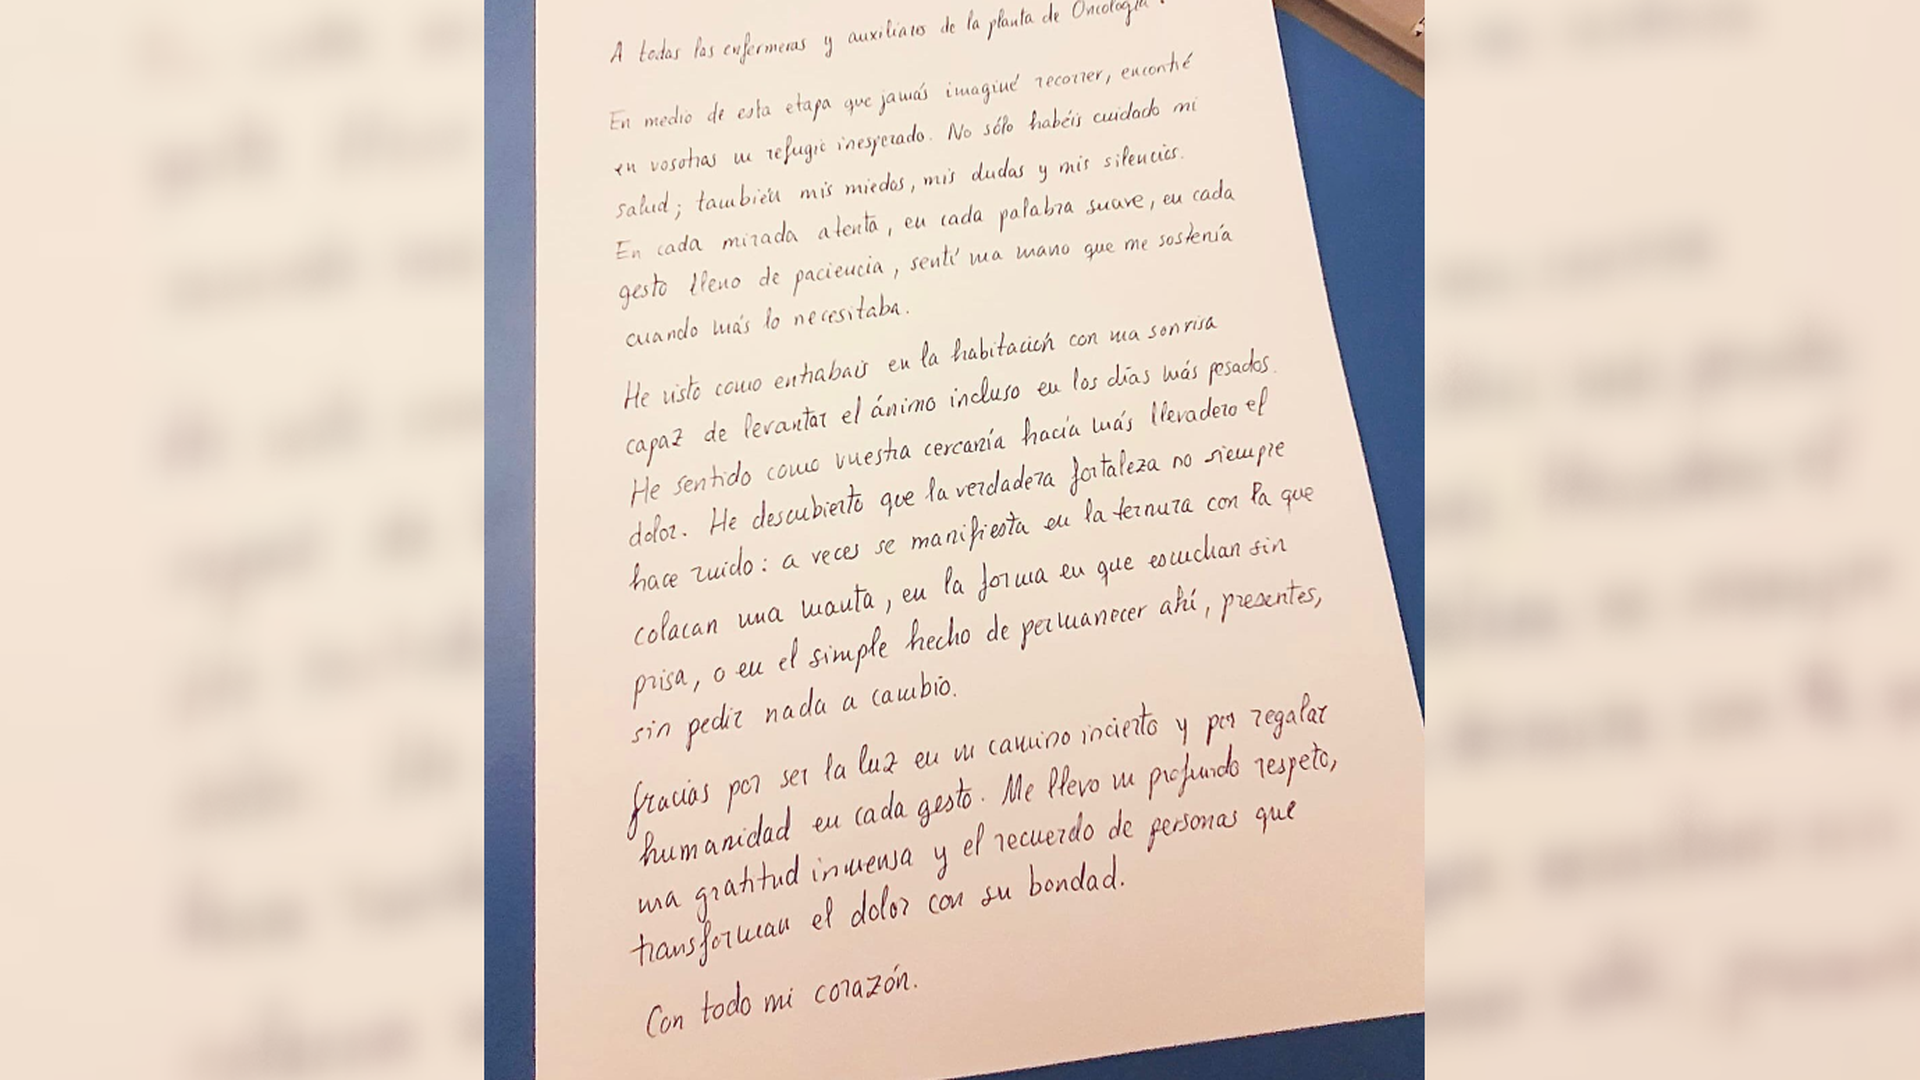 A todas las enfermeras y auxiliares de la planta de Oncología:
En medio de esta etapa que jamás imaginé recorrer, encontré
en vosotras un refugio inesperado. No sólo habéis cuidado mi
salud; también mis miedos, mis dudas y mis silencios.
En cada mirada atenta, en cada palabra suave, en cada
gesto lleno de paciencia, sentí una mano que me sostenía
cuando más lo necesitaba.
He visto como entrabais en la habitación con una sonrisa
capaz de levantar el ánimo incluso en los días más pesados.
He sentido como vuestra cercanía hacía más llevadero el
dolor. He descubierto que la verdadera fortaleza no siempre
hace ruido: a veces se manifiesta en la ternura con la que
colacan una manta, en la forma en que escuchan sin
prisa, o en el simple hecho de permanecer ahí, presentes,
sin pedir nada a cambio.
Gracias por ser la luz en un camino incierto y por regalar
humanidad en cada gesto. Me llevo un profundo respeto,
una gratitud inmensa y el recuerdo de personas que
transforman el dolor con su bondad.
Con todo mi corazón.